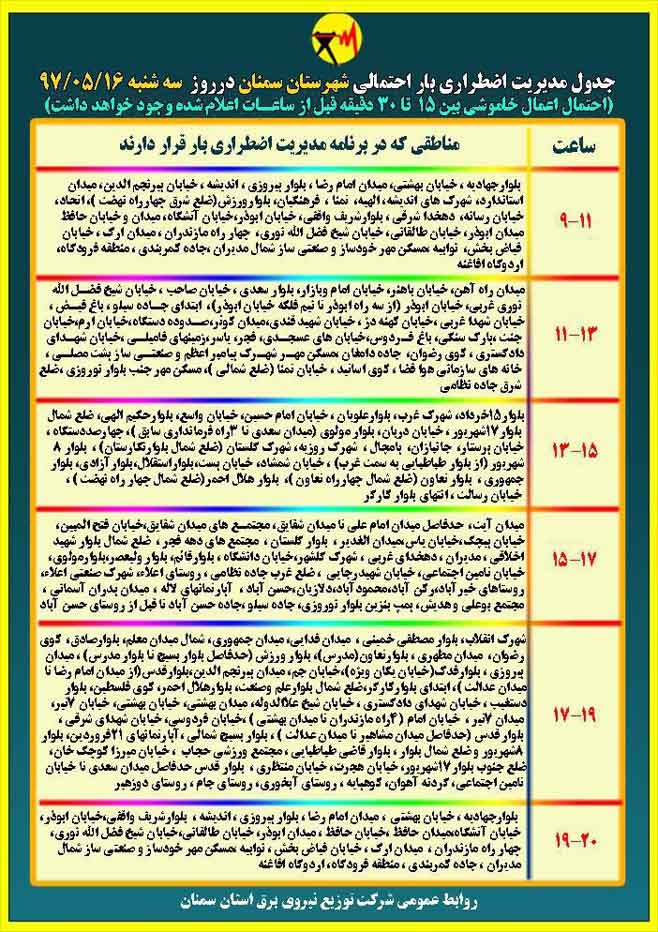 جدول مدیریت اضطراری بار احتمالی شهرستان سمنان در روز سه شنبه ۹۷/۰۵/۱۶
(احتمال اعمال خاموشی بین ۱۵ تا ۳۰ دقیقه قبل از ساعات اعلام شده وجود خواهد داشت)
ساعت
مناطقی که در برنامه مدیریت اضطراری بار قرار دارند
۹-۱۱
بلوارجهادیه ، خیابان بهشتی، میدان امام رضا ، بلوار پیروزی ، اندیشه ، خیابان پیرنجم الدین، میدان
استاندارد، شهرک های اندیشه، الهیه، نمتا ، فرهنگیان، بلوارورزش(ضلع شرق چهارراه نهضت )، اتحاد،
خیابان رسانه، دهخدا شرقی ، بلوارشریف واقفی، خیابان ابوذر،خیابان آتشگاه، میدان و خیابان حافظ
میدان ابوذر، خیابان طالقانی، خیابان شیخ فضل الله نوری، چهار راه مازندران ، میدان ارک ، خیابان
فیاض بخش، توابیه ،مسکن مهر خودساز و صنعتی ساز شمال مدیران ،جاده کمربندی ، منطقه فرودگاه،
اردوگاه افاغنه
۱۱-۱۳
میدان راه آهن، خیابان باهنر، خیابان امام وبازار، بلوار سعدی ، خیابان صاحب ، خیابان شیخ فضل الله
نوری غربی، خیابان ابوذر (از سه راه ابوذر تا نیم فلکه خیابان ابوذر)، ابتدای جاده سیلو ، باغ فیض ،
خیابان شهدا غربی ، خیابان کهنه دژ ، خیابان شهید قندی،میدان کوثر،صدوده دستگاه،خیابان ارم،خیابان
جنت ،پارک سنگی، باغ فردوس،خیابان های عسجدی، فجر، یاسر،زمینهای فامیلی،خیابان شهدای
دادگستری ، کوی رضوان، جاده دامغان ،مسکن مهر شهرک پیامبر اعظم و صنعتی ساز پشت مصلی ،
خانه های سازمانی هوا فضا ، کوی اساتید ، خیابان نمتا (ضلع شمالی )، مسکن مهر جنب بلوار نوروزی ،ضلع
شرق جاده نظامی
۱۳-۱۵
بلوار۱۵خرداد، شهرک غرب، بلوارعلویان ، خیابان امام حسین، خیابان واسع، بلوارحکیم الهی، ضلع شمال
بلوار۱۷شهریور ، خیابان دربان، بلوار مولوی (میدان سعدی تا ۳راه فرمانداری سابق )، چهارصددستگاه ،
خیابان پرستار، جانبازان، بامچال ، شهرک روزیه، شهرک گلستان (ضلع شمال بلوارنگارستان) ، بلوار ۸
شهریور (از بلوار طباطبایی به سمت غرب) ، خیابان شمشاد، خیابان پست،بلواراستقلال،بلوار آزادی، بلوار
جمهوری ، بلوار تعاون (ضلع شمال چهارراه تعاون )، بلوار هلال احمر(ضلع شمال چهار راه نهضت ) ،
خیابان رسالت ، انتهای بلوار کارگر
۱۵-۱۷
میدان آیت، حدفاصل میدان امام علی تا میدان شقایق، مجتمع های میدان شقایق،خیابان فتح المبین،
خیابان پیچک،خیابان یاس،میدان الغدیر ، بلوار گلستان ، مجتمع های دهه فجر ، ضلع شمال بلوار شهید
اخلاقی ، مدیران ، دهخدای غربی ، شهرک گلشهر،خیابان دانشگاه ، بلوارقائم، بلوار ولیعصر،بلوارمولوی،
خیابان تامین اجتماعی،خیابان شهیدرجایی ، ضلع غرب جاده نظامی ، روستای اعلاء، شهرک صنعتی اعلاء،
روستاهای خیرآباد،رکن آباد،محمودآباد،دلازیان،حسن آباد ، آپارتمانهای لاله ، میدان پدران آسمانی ،
مجتمع بوعلی و هدیش، پمپ بنزین بلوار نوروزی،جاده سیلو ،جاده حسن آباد تا قبل از روستای حسن آباد
۱۷-۱۹
شهرک انقلاب، بلوار مصطفی خمینی ، میدان فدایی، میدان جمهوری، شمال میدان معلم، بلوارصادق، کوی
رضوان، میدان مطهری ، بلوارتعاون(مدرس)، بلوار ورزش (حدفاصل بلوار بسیج تا بلوار مدرس) ، میدان
پیروزی ، بلوارفدک(خیابان یگان ویژه)، خیابان جم، میدان پیرنجم الدین،بلوارقدس(از میدان امام رضا تا
میدان عدالت )، ابتدای بلوارکارگر،ضلع شمال بلوارعلم وصنعت، بلوارهلال احمر، کوی فلسطین، بلوار
دستغیب ، خیابان شهدای دادگستری ، خیابان شیخ علاالدوله، میدان بهشتی، خیابان بهشتی، خیابان ۷تیر،
میدان ۷تیر ، خیابان امام (۴راه مازندران تا میدان بهشتی ) ، خیابان فردوسی، خیابان شهدای شرقی ،
بلوار قدس (حدفاصل میدان مشاهیر تا میدان عدالت ) ، بلوار بسیج شمالی ، آپارتمانهای ۲۱فروردین، بلوار
۸شهریور و ضلع شمال بلوار ، بلوار قاضی طباطبایی ، مجتمع ورزشی حجاب ، خیابان میرزا کوچک خان،
ضلع جنوب بلوار۱۷شهریور، خیابان هجرت، خیابان منتظری ، بلوار قدس حدفاصل میدان سعدی تا خیابان
تامین اجتماعی، گردنه آهوان، کوهپایه ، روستای آبخوری، روستای جام ، روستای دوزهیر
۱۹-۲۰
بلوارجهادیه ، خیابان بهشتی ، میدان امام رضا ، بلوار پیروزی ، اندیشه ، بلوارشریف واقفی،خیابان ابوذر،
خیابان آتشگاه،میدان حافظ ،خیابان حافظ ، میدان ابوذر، خیابان طالقانی، خیابان شیخ فضل الله نوری،
چهار راه مازندران ، میدان ارک ، خیابان فیاض بخش ، توابیه ،مسکن مهر خودساز و صنعتی ساز شمال
مدیران ، جاده کمربندی ، منطقه فرودگاه، اردوگاه افاغنه
روابط عمومی شرکت توزیع نیروی برق استان سمنان